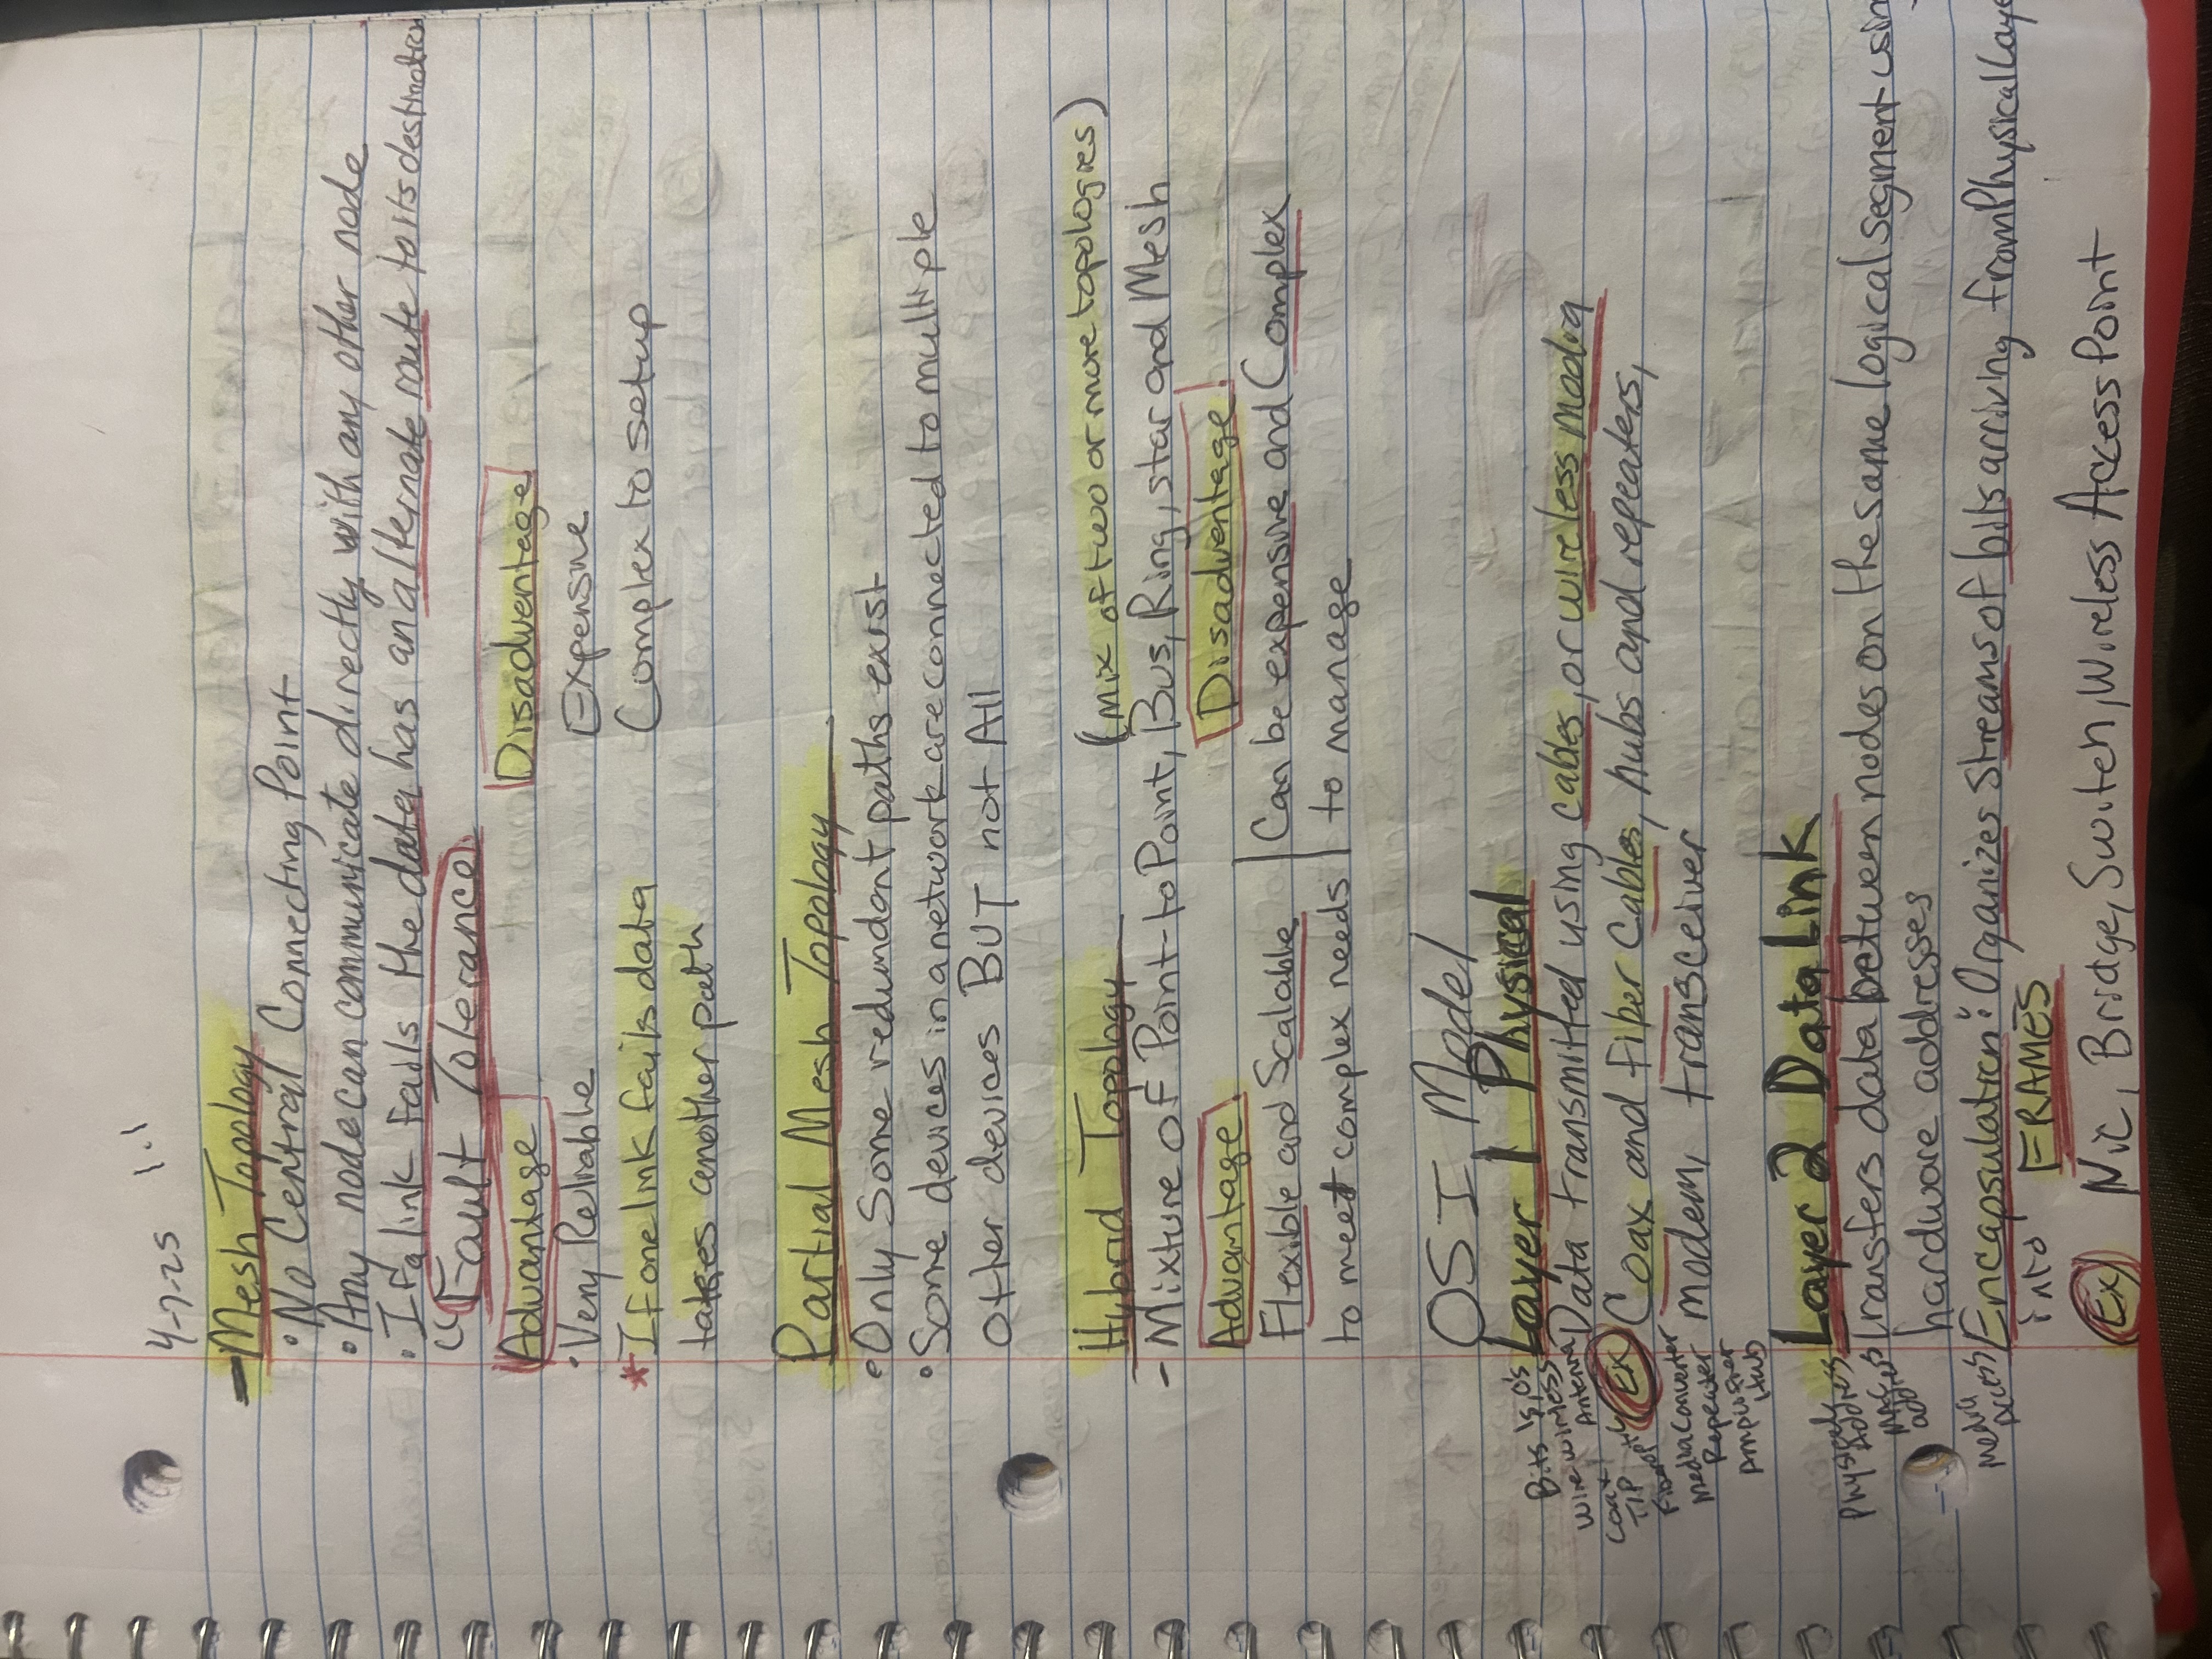 4-7-25 1.1
- Mesh Topology
• No Central Connecting Point
• Any node can communicate directly with any other node
• If a link fails the data has an alternate route to its destination
"Fault Tolerance"
Advantage Disadventage
• Very Reliable Expensive
* If one link fails data Complex to setup
takes another path
Partial Mesh Topology
• Only Some redundant paths exist
• Some devices in a network are connected to multiple
other devices BUT not All
Hybrid Topology (mix of two or more topologies)
- Mixture of Point-to Point, Bus, Ring, star and Mesh
Advantage Disadventage
Flexible and Scalable Can be expensive and Complex
to meet complex needs to manage
OSI Model
Layer 1 Physical
Bits 1s, 0's
Wire wirless
Antenna
Coax
Fiberoptic
Media Converter
Repeater
Amplifier
Hub
Data transmitted using cables, or wireless media
Ex Coax and fiber Cables, hubs and repeaters,
modem, transceiver
Layer 2 Data Link
Physical
Address
MAC
address
Media
Access
Transfers data between nodes on the same logical segment usin
hardware addresses
Encapsulation: Organizes Streams of bits arriving from Physical Laye
into FRAMES
Ex Nic, Bridge, Switch, Wireless Access Point